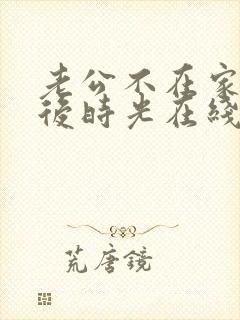 老公不在家
後時光在綫
荒唐鏡